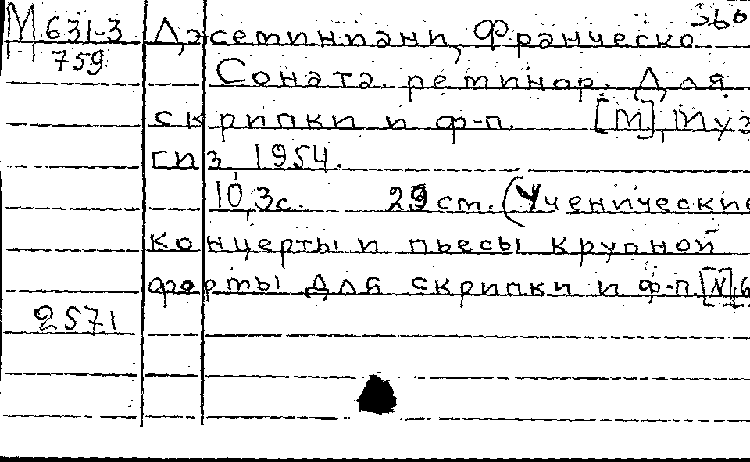 360
М 631-3 Джеминиани, Франческо
759
Соната ре минор. Для
скрипки и ф-п. [М], Муз
гиз, 1954.
10,3с. 29 ст. (Ученические
концерты и пьесы крупной
формы для скрипки и ф-п.
2571